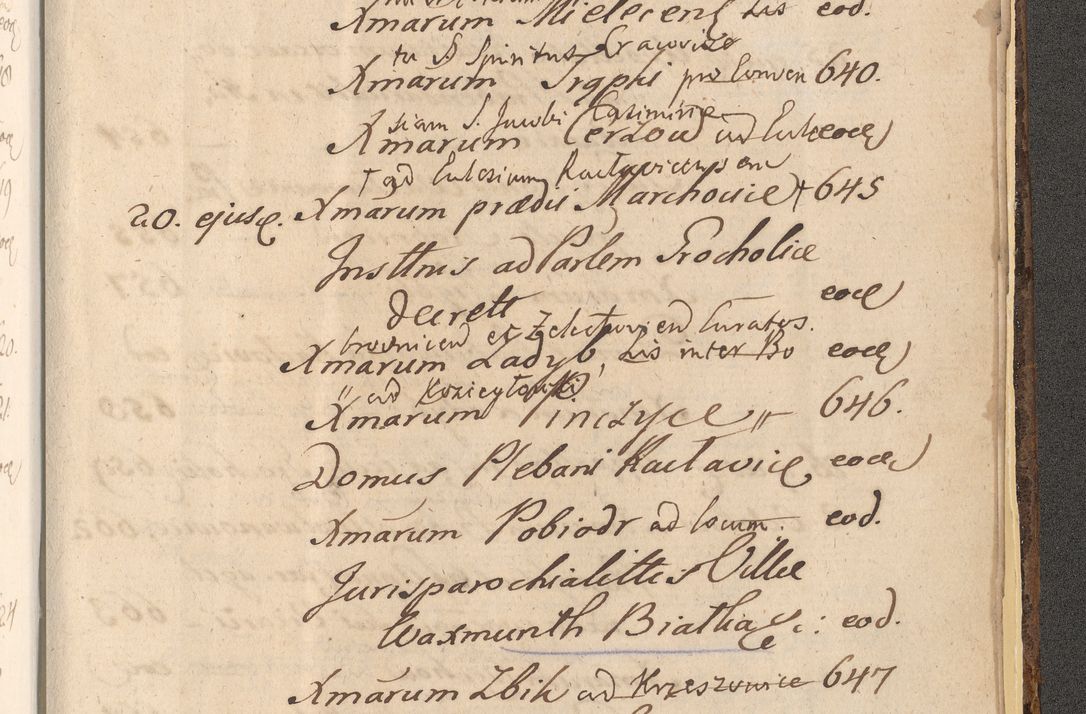 Xmarum Mielecens Lis eod.
tu S Spiritus Cracovize
Xmarum Srąpki pro Conven 640.
siam S. Jacobi Casimirie
Xmarum Cerzow ad Ecle eode
† ad Eclesium Racławicensem
20. ejusq. Xmarum prædii Marchouice † 645
Insttnis ad Parlem Grocholice
Decrett eode
brovnicen et Zelechovien Curatos.
Xmarum Ladyb, Lis inter Bo eode
" ad Koziegłowki
Xmarum Pinczyce " 646.
Domus Plebani Racławice eode
Xmarum Pobiodr ad locum. eod.
Jurisparochialittis Villæ
Waxmunth Białka &c: eod.
Xmarum Zbik ad Krzeszowice 647